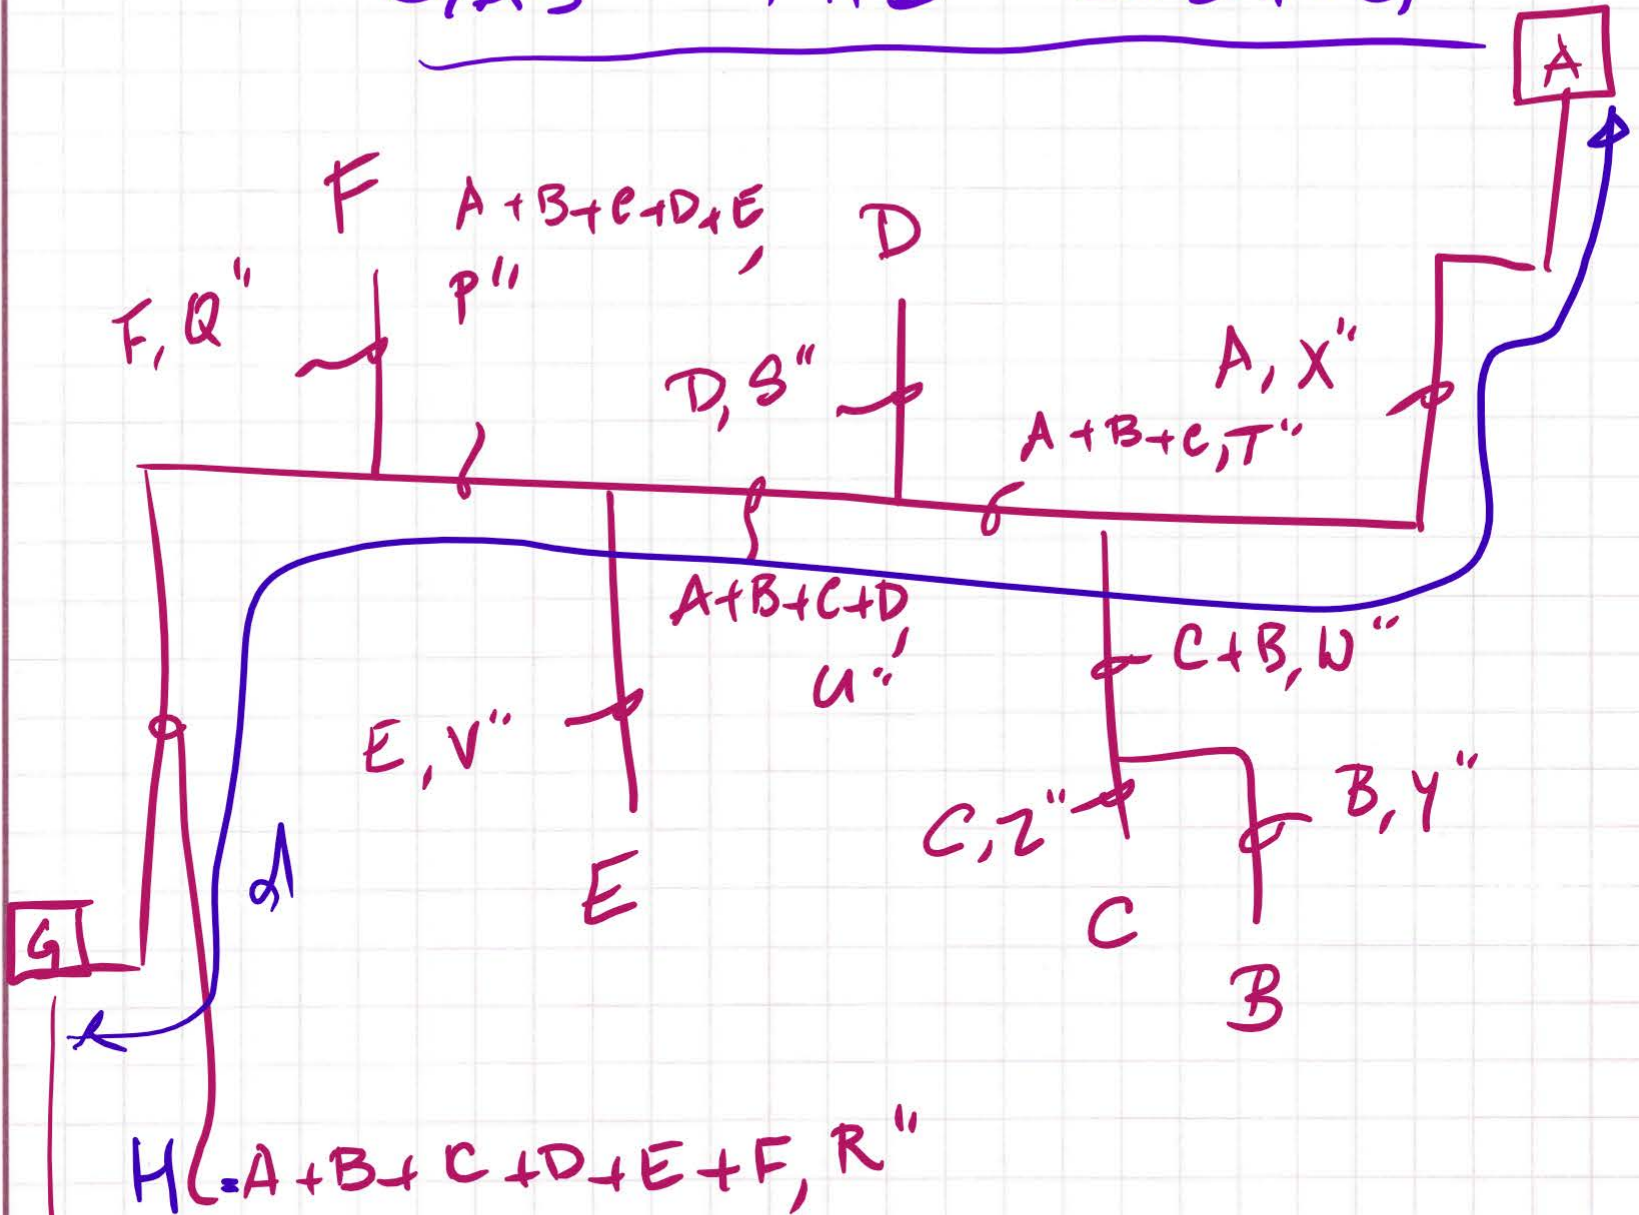 A
F
A+B+C+D+E,
P"
D
F, Q"
D, S"
A, X"
A+B+C, T"
A+B+C+D,
U"
C+B, W"
E, V"
B, Y"
C, Z"
E
G
C
B
H = A+B+C+D+E+F, R"